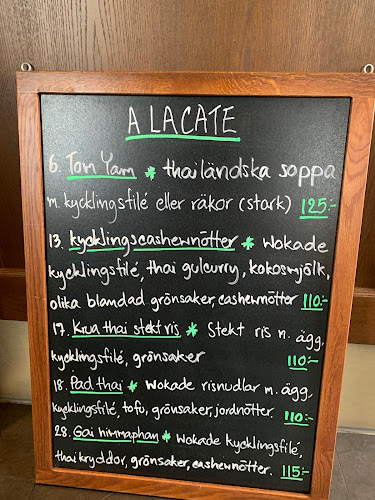 A LA CATE
6. Tom Yam * thailändska soppa
m. kycklingsfilé eller räkor (stark) 125:-
13. kycklingscashewnötter * Wokade
kycklingsfilé, thai gulcurry, kokosmjölk,
olika blandad grönsaker, cashewnötter 110:-
17. Krua thai stekt ris * Stekt ris m. ägg,
kycklingsfilé, grönsaker 110:-
18. Pad thai * Wokade risnudlar m. ägg,
kycklingsfilé, tofu, grönsaker, jordnötter. 110:-
28. Gai himmaphan * Wokade kycklingsfilé,
thai kryddor, grönsaker, cashewnötter. 115:-